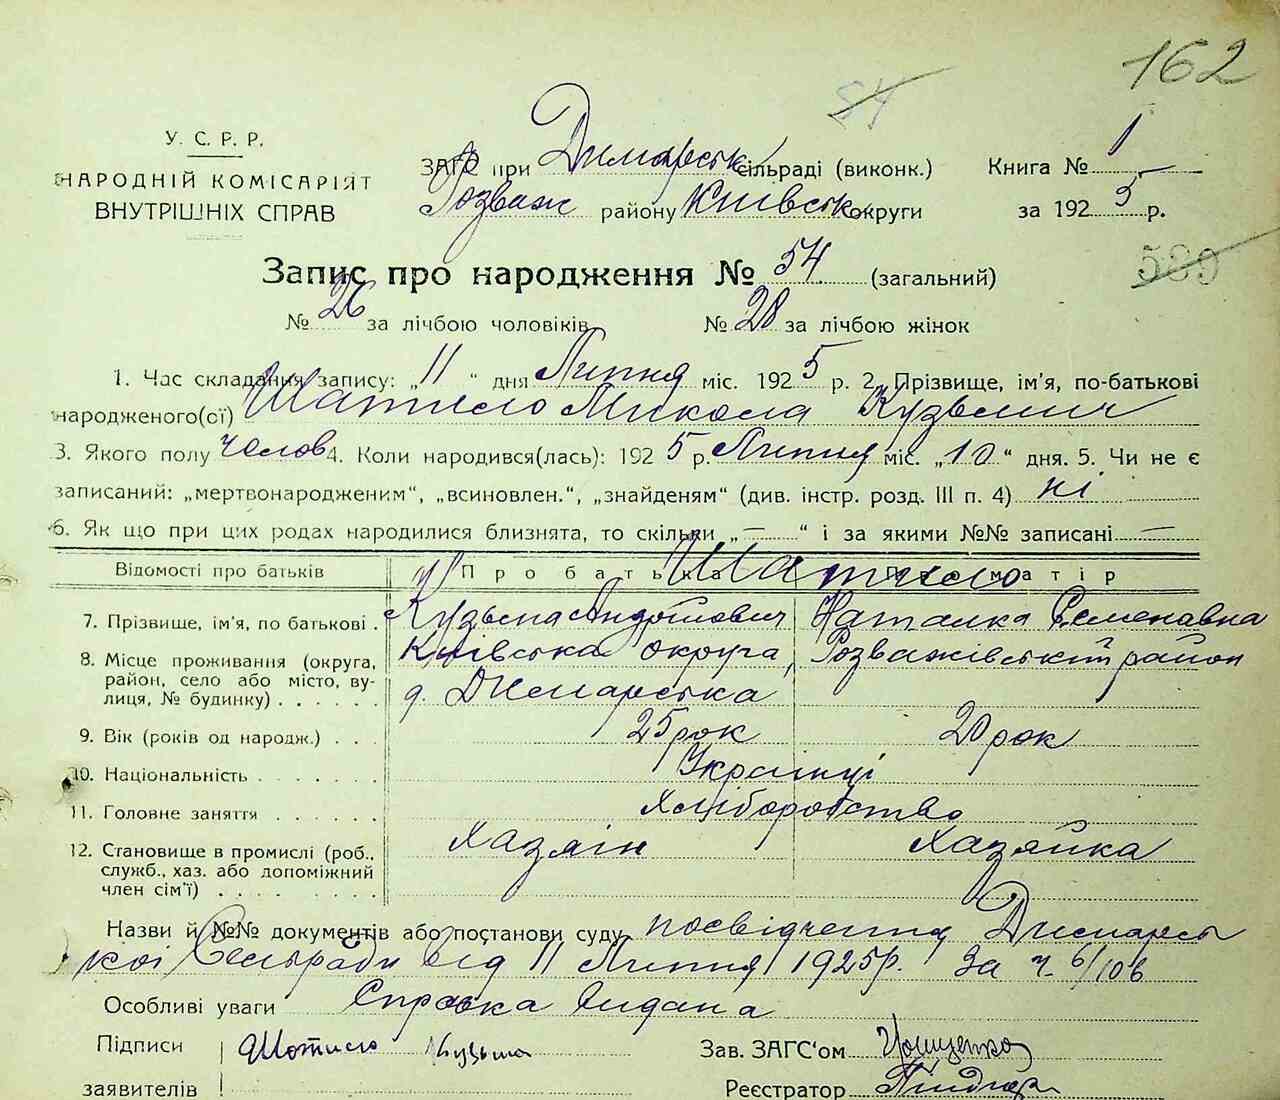 162
54
У. С. Р. Р.
НАРОДНІЙ КОМІСАРІЯТ
ВНУТРІШНІХ СПРАВ
ЗАГС при Димарськ сільраді (виконк.)
Розваж району Київськ округи
Книга № 1
за 1925 р.
539
Запис про народження № 54. (загальний)
№ 26 за лічбою чоловіків № 28 за лічбою жінок
1. Час складання запису: „11“ дня Липня міс. 1925 р. 2. Прізвище, ім'я, по-батькові
народженого(сї) Шатило Микола Кузьмич
3. Якого полу челов 4. Коли народився(лась): 1925 р. Липня міс. „10“ дня. 5. Чи не є
записаний: „мертвонародженим“, „всиновлен.“, „знайденям“ (див. інстр. розд. III п. 4) ні
6. Як що при цих родах народилися близнята, то скільки „—“ і за якими №№ записані —
Відомості про батьків Про батька Шатило матір
7. Прізвище, ім'я, по батькові . Кузьма Наталка Семенавна
8. Місце проживання (округа, район, село або місто, вулиця, № будинку) . . . . . . Київська округа, Розважівський район
д. Димарська
9. Вік (років од народж.) . . . 25 рок 20 рок
10. Національність . . . . . . . Українці
11. Головне заняття . . . . . . Хліборобство
12. Становище в промислі (роб., служб., хаз. або допоміжний член сім'ї) . . . . . . . . Хазяін Хазяйка
Назви й №№ документів або постанови суду посвідчення Димарсь
кої Сельради від 11 Липня 1925 р. за ч. 6/106
Особливі уваги Справка видана
Підписи Шотило Кузьма Зав. ЗАГС'ом
заявителів Реєстратор